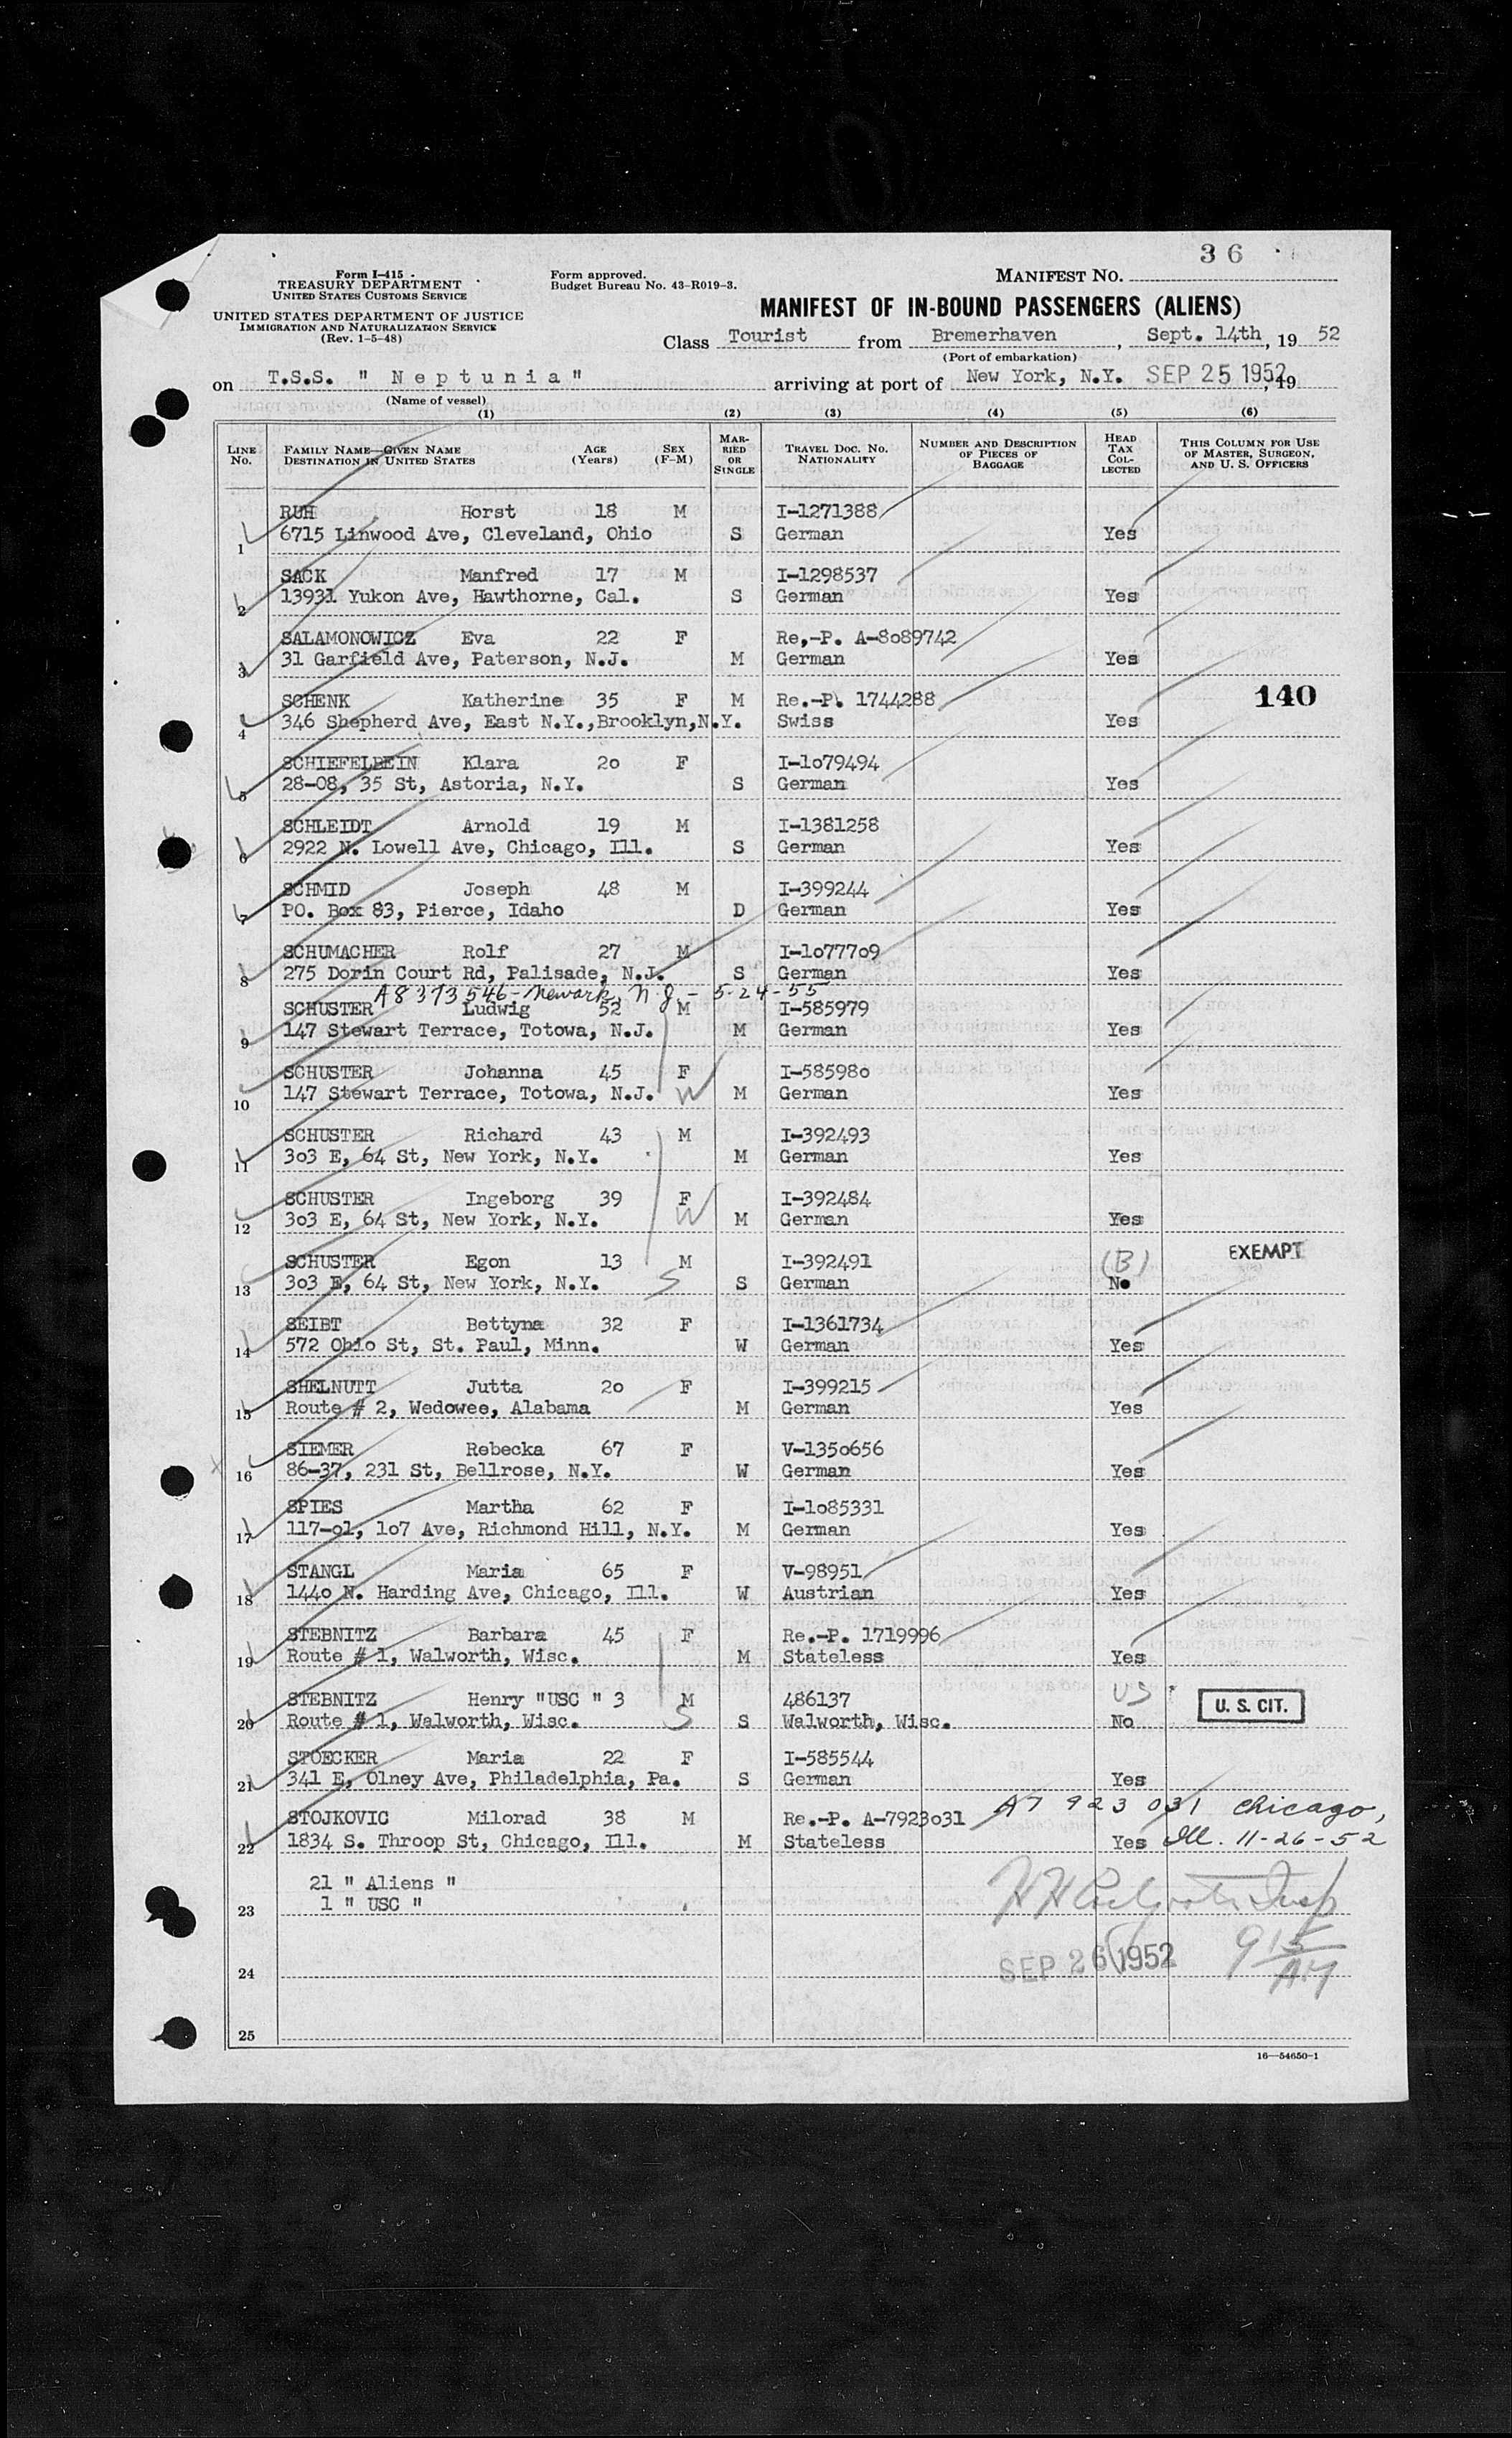 36
Form I-415
TREASURY DEPARTMENT
UNITED STATES CUSTOMS SERVICE
UNITED STATES DEPARTMENT OF JUSTICE
IMMIGRATION AND NATURALIZATION SERVICE
(Rev. 1-5-48)
Form approved.
Budget Bureau No. 43-R019-3.
MANIFEST NO.
MANIFEST OF IN-BOUND PASSENGERS (ALIENS)
Class Tourist from Bremerhaven, Sept. 14th, 19 52
(Port of embarkation)
on T.S.S. " Neptunia " arriving at port of New York, N.Y. SEP 25 1952, 19
(Name of vessel)
(1) (2) (3) (4) (5) (6)
LINE No. FAMILY NAME—GIVEN NAME DESTINATION IN UNITED STATES AGE (Years) SEX (F-M) MARRIED OR SINGLE TRAVEL DOC. NO. NATIONALITY NUMBER AND DESCRIPTION OF PIECES OF BAGGAGE HEAD TAX COLLECTED THIS COLUMN FOR USE OF MASTER, SURGEON, AND U. S. OFFICERS
RUH Horst 18 M I-1271388
1 6715 Linwood Ave, Cleveland, Ohio S German Yes
SACK Manfred 17 M I-1298537
2 13931 Yukon Ave, Hawthorne, Cal. S German Yes
SALAMONOWICZ Eva 22 F Re,-P. A-8o89742
3 31 Garfield Ave, Paterson, N.J. M German Yes
SCHENK Katherine 35 F M Re.-P. 1744288 140
4 346 Shepherd Ave, East N.Y.,Brooklyn,N.Y. Swiss Yes
SCHIEFELBEIN Klara 2o F I-1o79494
5 28-08, 35 St, Astoria, N.Y. S German Yes
SCHLEIDT Arnold 19 M I-1381258
6 2922 N. Lowell Ave, Chicago, Ill. S German Yes
SCHMID Joseph 48 M I-399244
7 PO. Box 83, Pierce, Idaho D German Yes
SCHUMACHER Rolf 27 M I-1o777o9
8 275 Dorin Court Rd, Palisade, N.J. S German Yes
A8 373 546 - Newark, N.J. - 5-24-55
SCHUSTER Ludwig 52 M I-585979
9 147 Stewart Terrace, Totowa, N.J. M German Yes
SCHUSTER Johanna 45 F I-58598o
10 147 Stewart Terrace, Totowa, N.J. W M German Yes
SCHUSTER Richard 43 M I-392493
11 3o3 E, 64 St, New York, N.Y. M German Yes
SCHUSTER Ingeborg 39 F I-392484
12 3o3 E, 64 St, New York, N.Y. W M German Yes
SCHUSTER Egon 13 M I-392491 (B) EXEMPT
13 3o3 E, 64 St, New York, N.Y. S S German No
SEIBT Bettyna 32 F I-1361734
14 572 Ohio St, St. Paul, Minn. W German Yes
SHELNUTT Jutta 2o F I-399215
15 Route # 2, Wedowee, Alabama M German Yes
SIEMER Rebecka 67 F V-135o656
16 86-37, 231 St, Bellrose, N.Y. W German Yes
SPIES Martha 62 F I-1o85331
17 117-o1, 1o7 Ave, Richmond Hill, N.Y. M German Yes
STANGL Maria 65 F V-98951
18 144o N. Harding Ave, Chicago, Ill. W Austrian Yes
STEBNITZ Barbara 45 F Re.-P. 1719996
19 Route # 1, Walworth, Wisc. M Stateless Yes
STEBNITZ Henry "USC " 3 M 486137 US U. S. CIT.
20 Route # 1, Walworth, Wisc. S S Walworth, Wisc. No
STOECKER Maria 22 F I-585544
21 341 E, Olney Ave, Philadelphia, Pa. S German Yes
STOJKOVIC Milorad 38 M Re.-P. A-7923o31 A7 923 031 Chicago,
22 1834 S. Throop St, Chicago, Ill. M Stateless Yes Ill. 11-26-52
21 " Aliens "
23 1 " USC "
Insp
SEP 26 1952 9 15 AM
24
25
16—54650-1